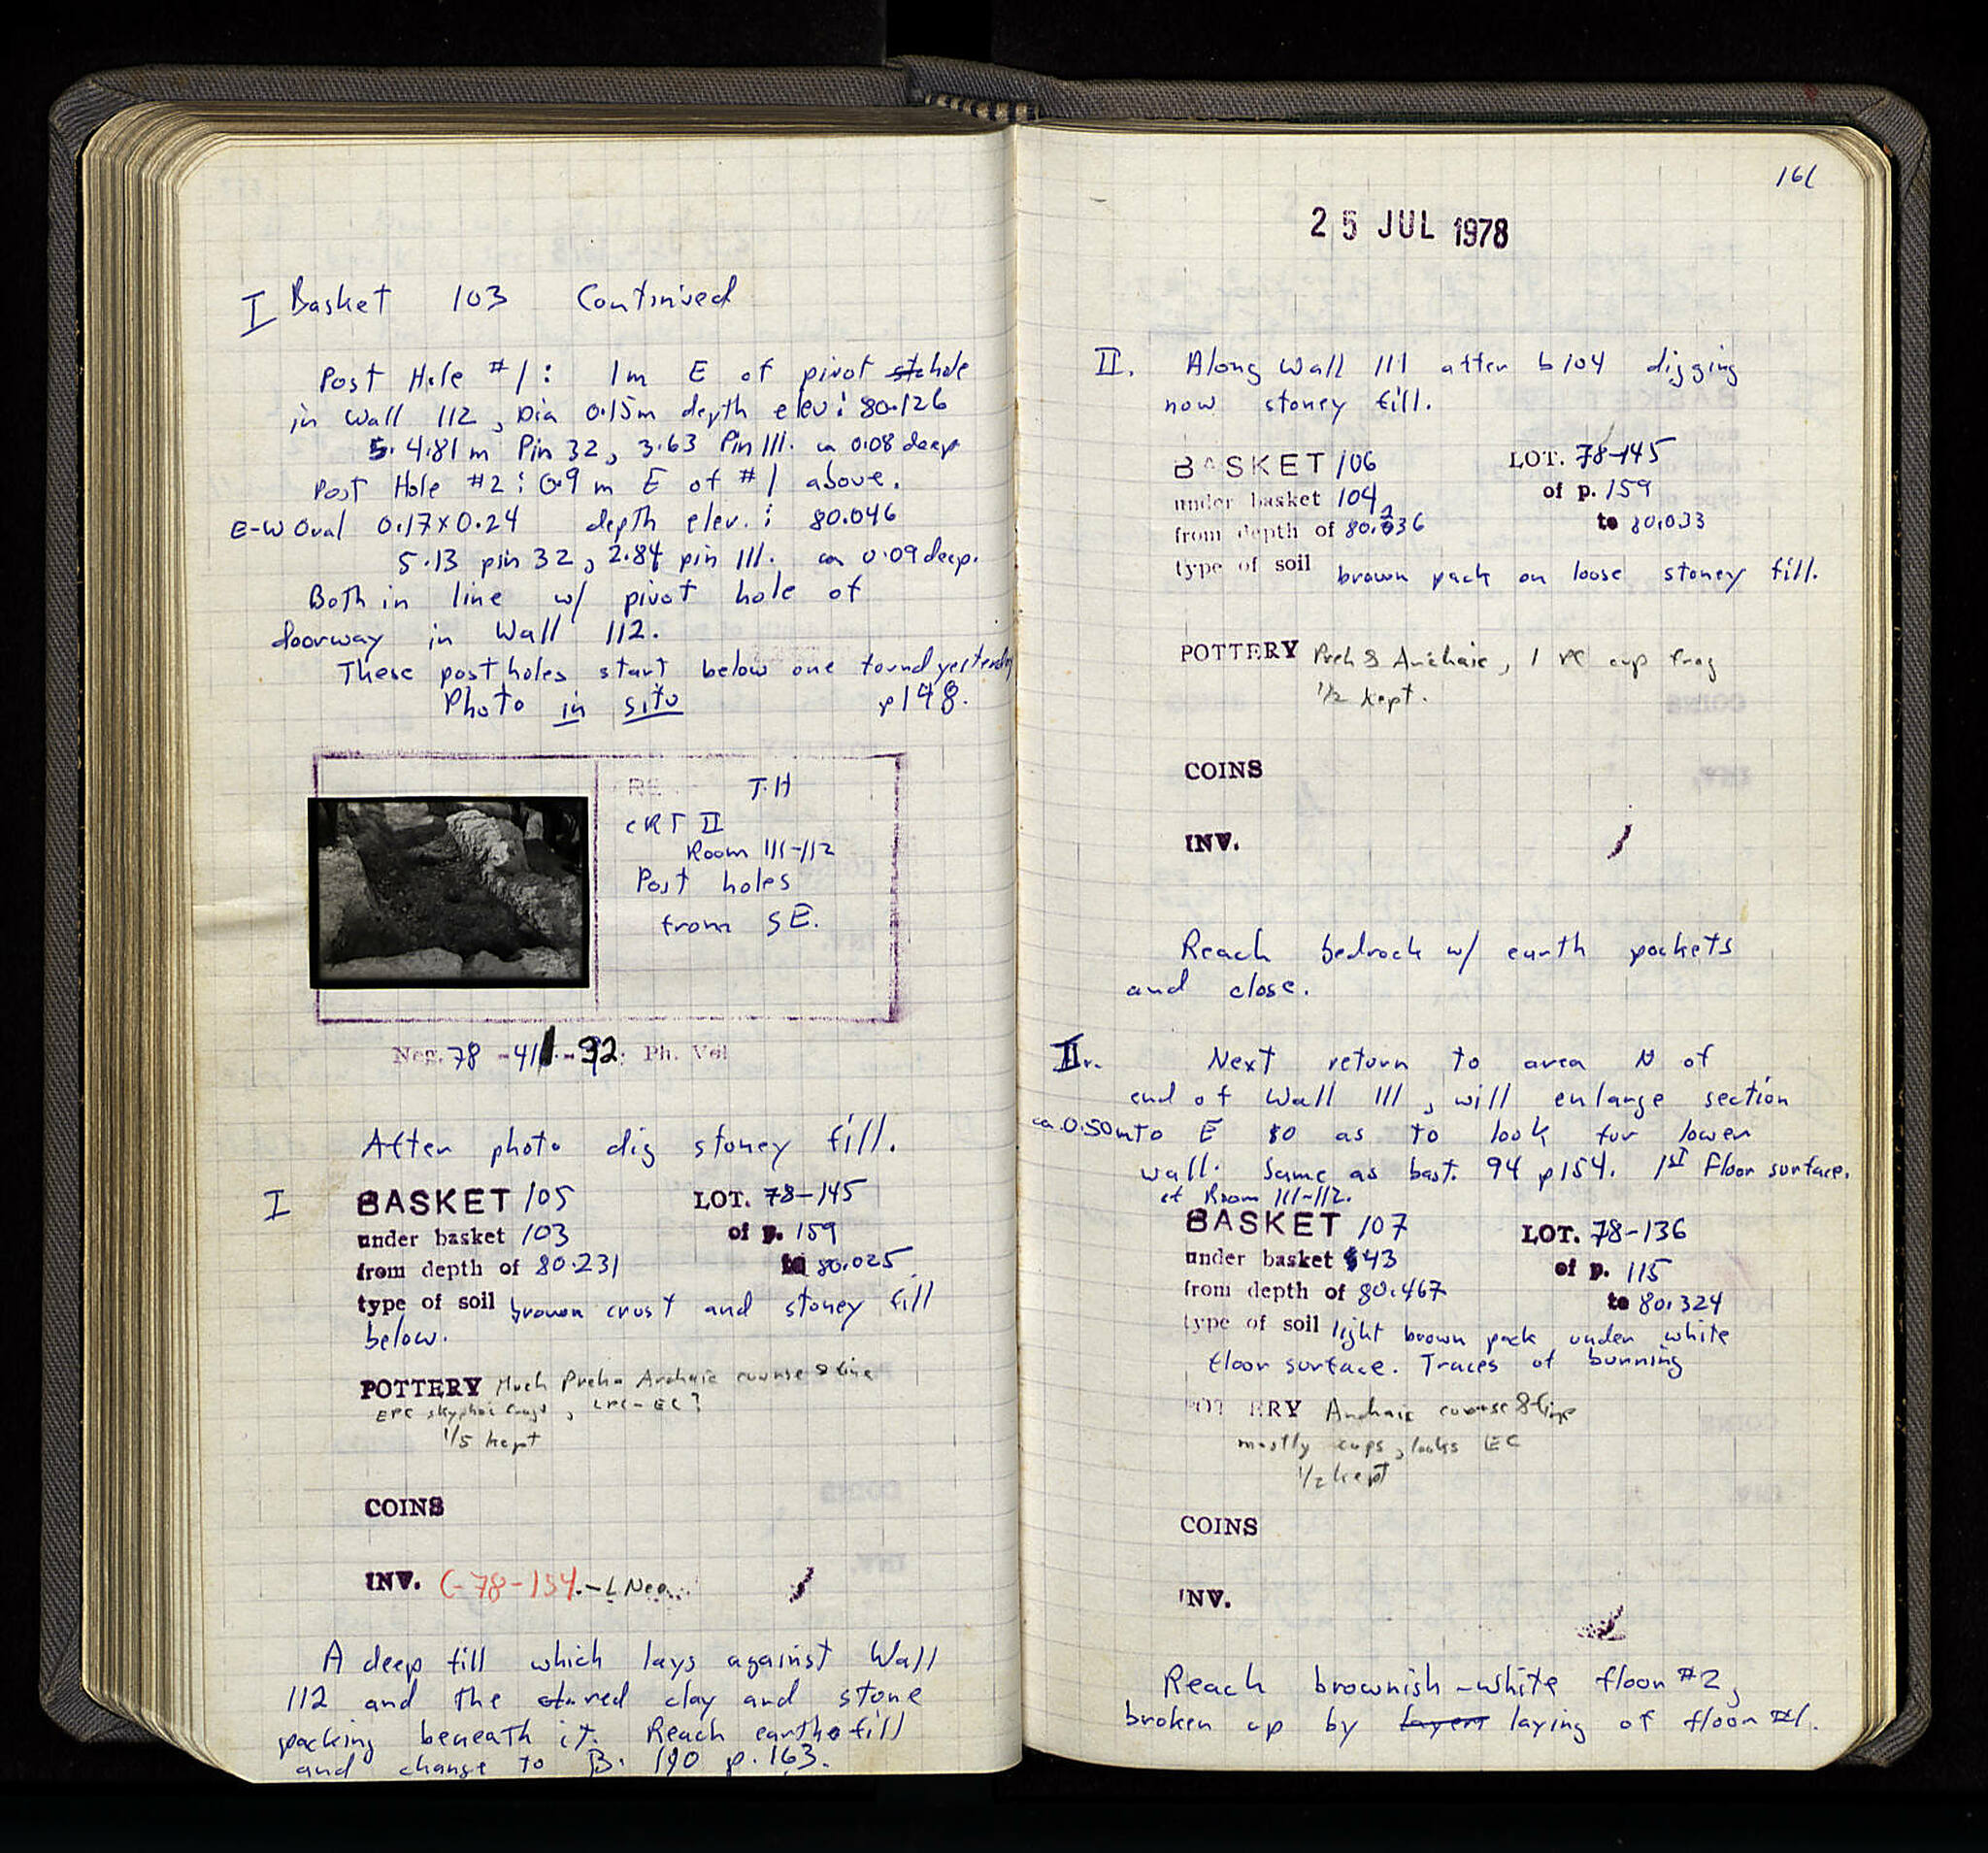 I Basket 103 Continued
Post Hole #1: 1m E of pivot hole
in Wall 112, Dia 0.15m depth elev: 80.126
4.81 m Pin 32, 3.63 Pin 111. ca 0.08 deep
Post Hole #2: 0.9 m E of #1 above.
E-W Oval 0.17x0.24 depth elev.: 80.046
5.13 pin 32, 2.84 pin 111. ca 0.09 deep.
Both in line w/ pivot hole of
doorway in Wall 112.
These postholes start below one found yesterday
Photo in situ p148.
T.H
CRT II
Room 111-112
Post holes
from SE.
Neg. 78 -41 -32. Ph. Vol
After photo dig stoney fill.
I BASKET 105 LOT. 78-145
under basket 103 of p. 159
from depth of 80.231 to 80.025
type of soil brown crust and stoney fill
below.
POTTERY Much Preh Archaic coarse & fine
EPC skyphoi frags, LPC-EC?
1/5 kept
COINS
INV. C-78-154. - L Neg.
A deep fill which lays against Wall
112 and the clay and stone
packing beneath it. Reach earth fill
and change to B. 110 p. 163.
161
25 JUL 1978
II. Along Wall 111 after b104 digging
now stoney fill.
BASKET 106 LOT. 78-145
under basket 104 of p. 159
from depth of 80.236 to 80.033
type of soil brown pack on loose stoney fill.
POTTERY Preh & Archaic, 1 PC cup frag
1/2 kept.
COINS
INV.
Reach bedrock w/ earth pockets
and close.
II. Next return to area N of
end of Wall 111, will enlarge section
ca. 0.50m to E so as to look for lower
wall. Same as bast. 94 p154. 1st Floor surface.
of Room 111-112.
BASKET 107 LOT. 78-136
under basket 43 of p. 115
from depth of 80.467 to 80.324
type of soil light brown pack under white
floor surface. Traces of burning
POTTERY Archaic coarse & fine
mostly cups, looks EC
1/2 kept
COINS
INV.
Reach brownish-white floor #2,
broken up by layers laying of floor #1.